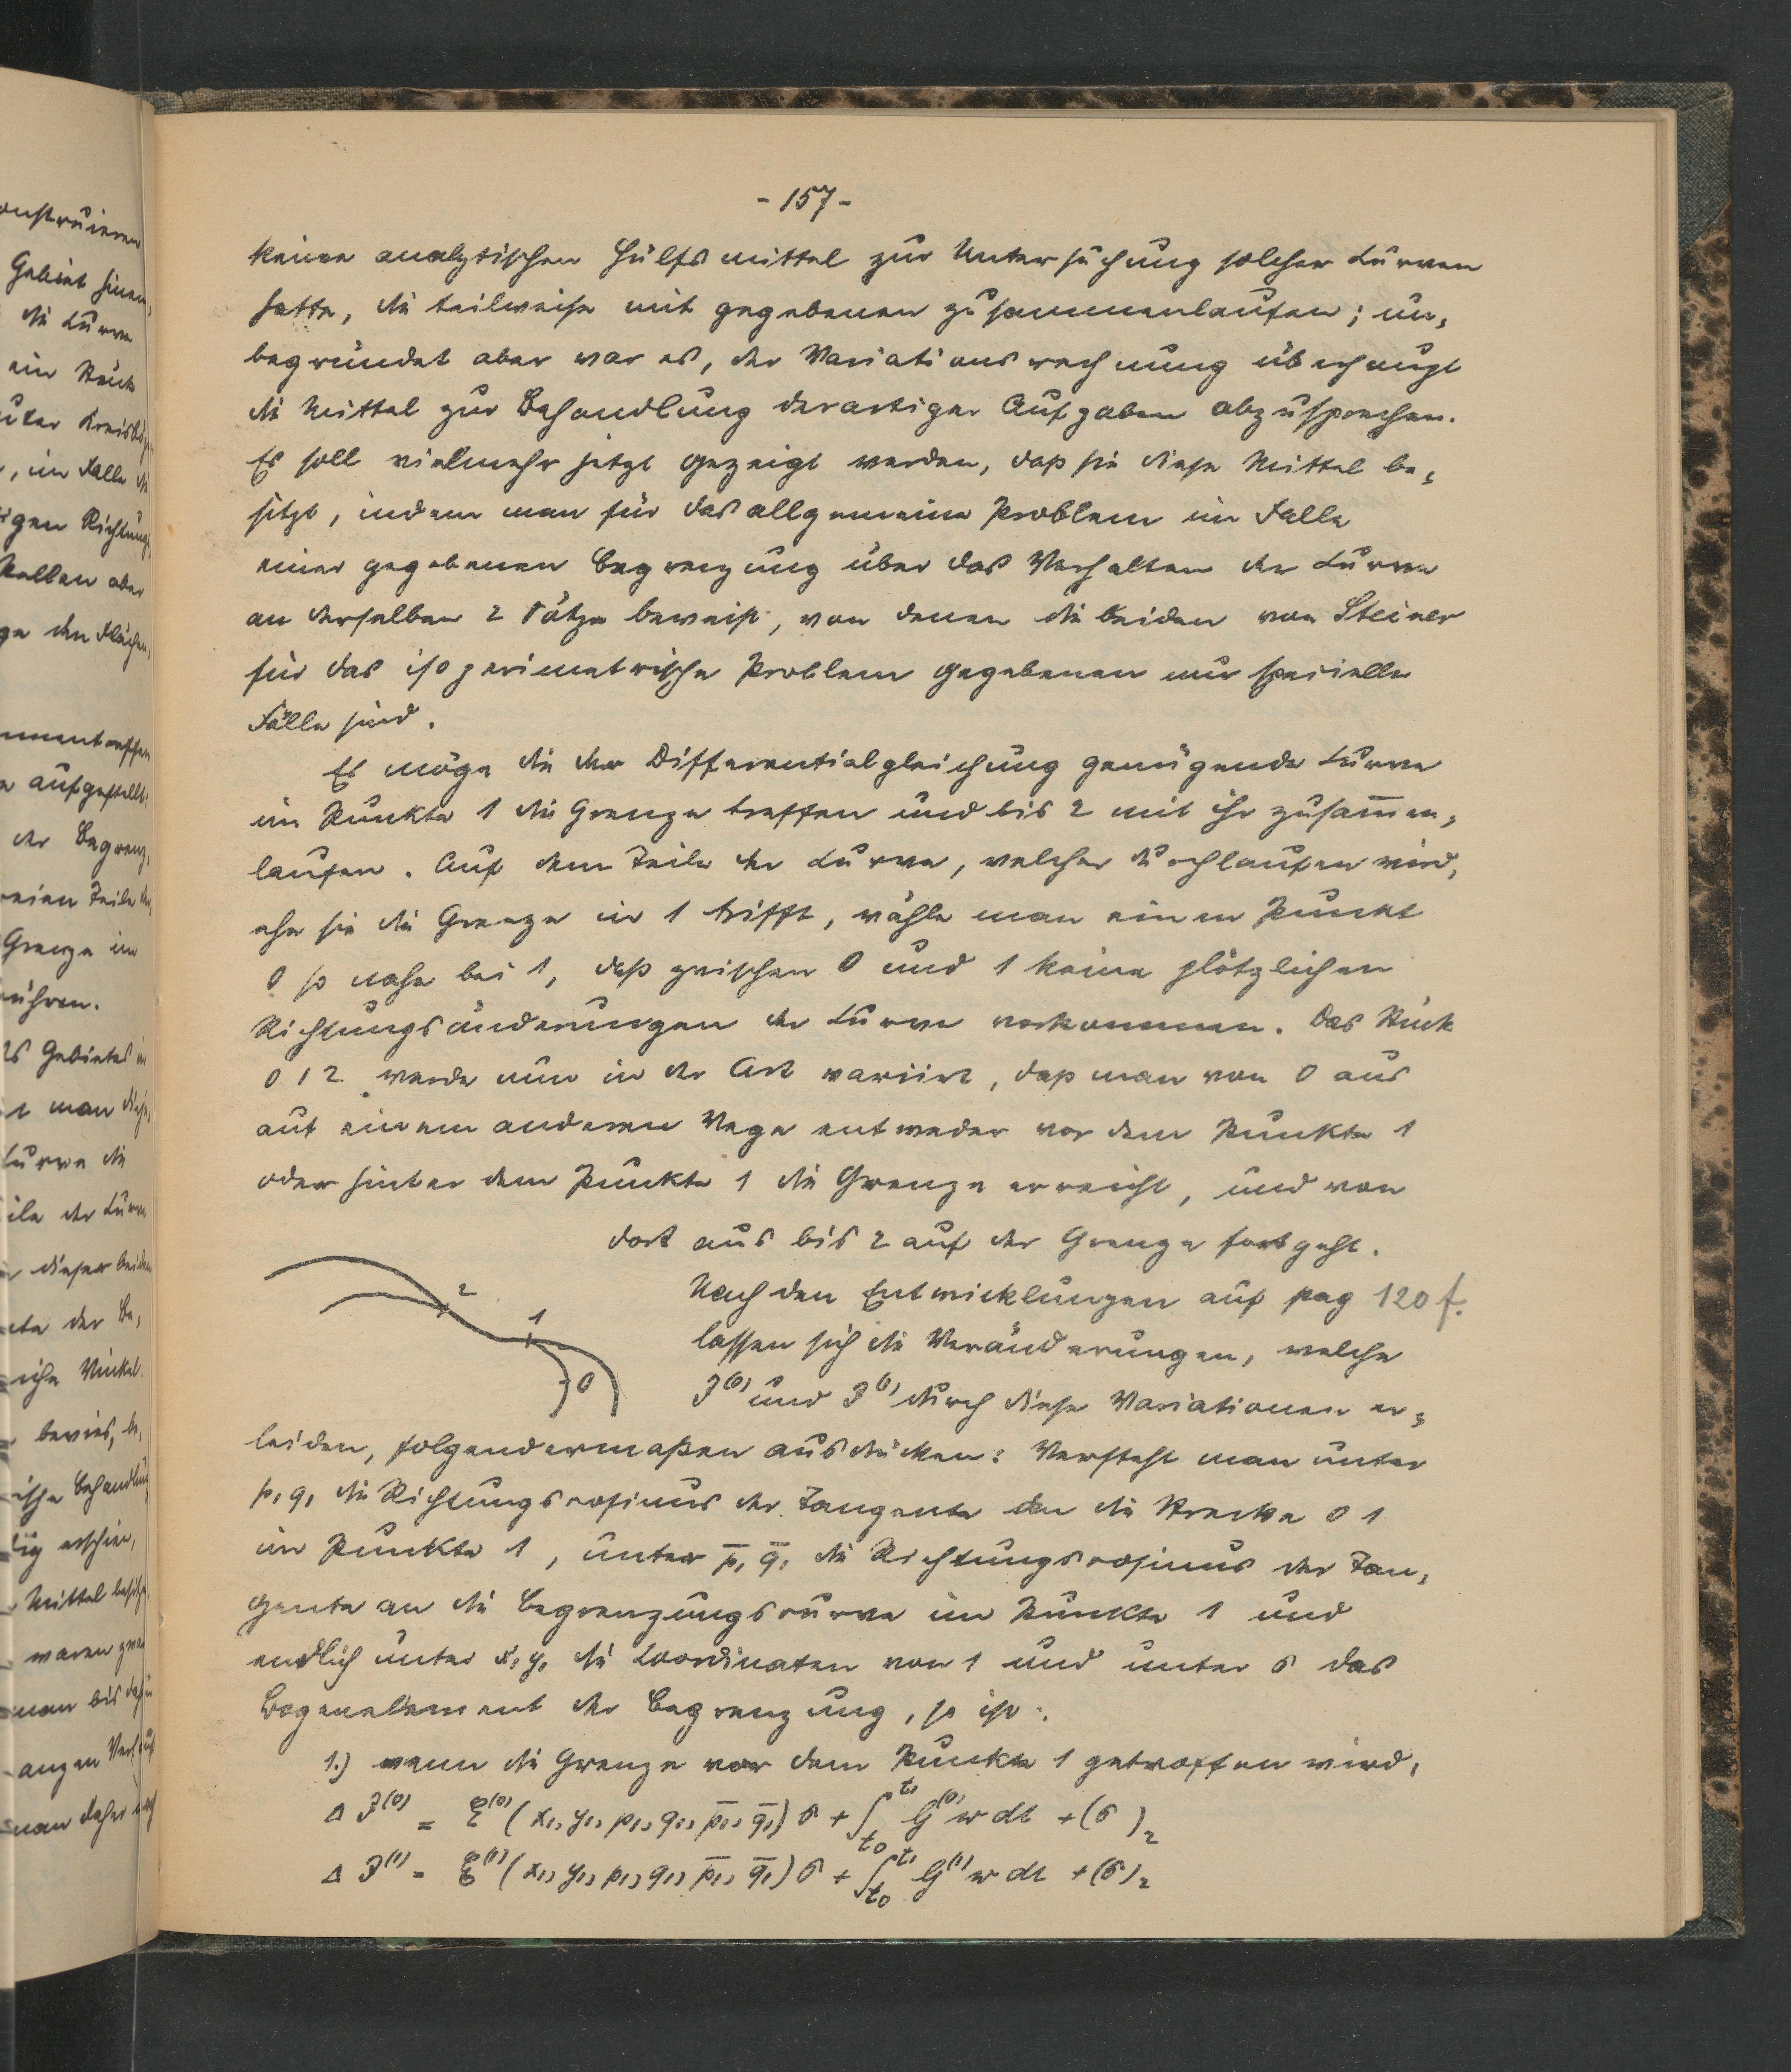 - 157 -
keine analytischen Hülfsmittel zur Untersuchung solcher Curven
hatte, die teilweise mit gegebenen zusammenlaufen; un-
begründet aber war es, der Variationsrechnung überhaupt
die Mittel zur Behandlung derartiger Aufgaben abzusprechen.
Es soll vielmehr jetzt gezeigt werden, daß sie diese Mittel be-
sitzt, indem man für das allgemeine Problem im Falle
einer gegebenen Begrenzung über das Verhalten der Curve
an derselben 2 Sätze beweist, von denen die beiden von Steiner
für das isoperimetrische Problem gegebenen nur specielle
Fälle sind.
Es möge die der Differentialgleichung genügende Curve
im Punkte 1 die Grenze treffen und bis 2 mit ihr zusam̅en-
laufen. Auf dem Teile der Curve, welcher durchlaufen wird,
ehe sie die Grenze in 1 trifft, wähle man einen Punkt
0 so nahe bei 1, daß zwischen 0 und 1 keine plötzlichen
Richtungsänderungen der Curve vorkommen. Das Stück
0 1 2 werde nun in der Art variirt, daß man von 0 aus
auf einem anderen Wege entweder vor dem Punkte 1
oder hinter dem Punkte 1 die Grenze erreicht, und von
dort aus bis 2 auf der Grenze fortgeht.
Nach den Entwicklungen auf pag 120 f.
lassen sich die Veränderungen, welche
J⁽⁰⁾ und J⁽¹⁾ durch diese Variationen er-
2
1
0
leiden, folgendermaßen ausdrücken: Versteht man unter
p₁ q₁ die Richtungscosinus der Tangente an die Strecke 0 1
im Punkte 1, unter p̅₁ q̅₁ die Richtungscosinus der Tan-
gente an die Begrenzungscurve im Punkte 1 und
endlich unter x₁ y₁ die Coordinaten von 1 und unter σ das
Bogenelement der Begrenzung, so ist:
1.) wenn die Grenze vor dem Punkte 1 getroffen wird,
Δ J⁽⁰⁾ = ℰ⁽⁰⁾ (x₁, y₁, p₁, q₁, p̅₁, q̅₁) σ + ∫_{t₀}^{t₁} G⁽⁰⁾ w dt + (σ)₂
Δ J⁽¹⁾ = ℰ⁽¹⁾ (x₁, y₁, p₁, q₁, p̅₁, q̅₁) σ + ∫_{t₀}^{t₁} G⁽¹⁾ w dt + (σ)₂